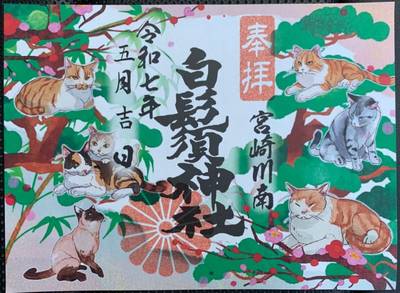 奉拝
宮崎川南
白髭須神社
令和七年
五月吉日